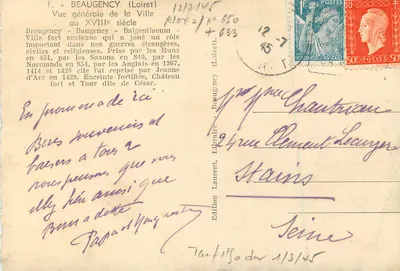 1. - BEAUGENCY (Loiret)
Vue générale de la Ville
au XVIIIe siècle
Beaugency - Baugency - Balgentiacum
Ville fort ancienne qui a joué un rôle
important dans nos guerres étrangères,
civiles et religieuses. Prise par les Huns
en 451, par les Saxons en 840, par les
Normands en 854, par les Anglais en 1367,
1414 et 1428 elle fut reprise par Jeanne
d'Arc en 1429. Enceinte fortifiée, Château
fort et Tour dite de César.
12/7/45
+ 683
12-7
45
En promenade ici
Bons souvenirs et
baisers à tous 2
nous pensons que vous
allez bien ainsi que
Bernadette
Papa et Marguerite
Edition Laurent, Libraire, Beaugency (Loiret)
Chantreau
24 rue Clément
Stains
Seine
Tarif du 1/3/45
50c
50c